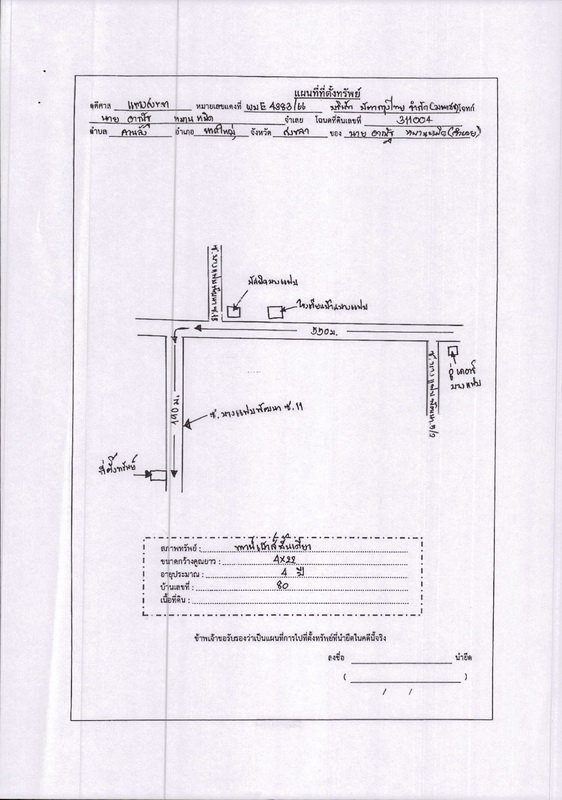 แผนที่ที่ตั้งทรัพย์
คดีศาล แขวงสงขลา หมายเลขแดงที่ ผบE 4883/66 บริษัท จำกัด(มหาชน)โจทก์
นาย จำเลย โฉนดที่ดินเลขที่ 311004
ตำบล ควนลัง อำเภอ หาดใหญ่ จังหวัด สงขลา ของ นาย (จำเลย)
ซ.บางแฟบพัฒนา ซ.18
มัสยิดบางแฟบ
โรงเรียนบ้านบางแฟบ
550 ม.
ซ.บางแฟบพัฒนา 9/2
อู่
บางแฟบ
190 ม.
ซ.บางแฟบพัฒนา ซ.11
ที่ตั้งทรัพย์
สภาพทรัพย์ : ทาวน์เฮาส์ชั้นเดียว
ขนาดกว้างคูณยาว : 4x22
อายุประมาณ : 4 ปี
บ้านเลขที่ : 80
เนื้อที่ดิน :
ข้าพเจ้าขอรับรองว่าเป็นแผนที่การไปที่ตั้งทรัพย์ที่นำยึดในคดีนี้จริง
ลงชื่อ นำยึด
( )
/ /